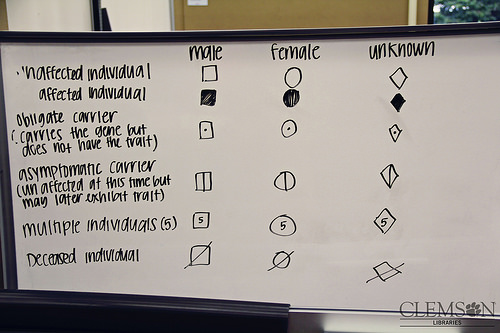 male female unknown
unaffected individual
affected individual
obligate carrier
(carries the gene but
does not have the trait)
asymptomatic carrier
(unaffected at this time but
may later exhibit trait)
multiple individuals (5) 5 5 5
Deceased individual
CLEMSON
LIBRARIES